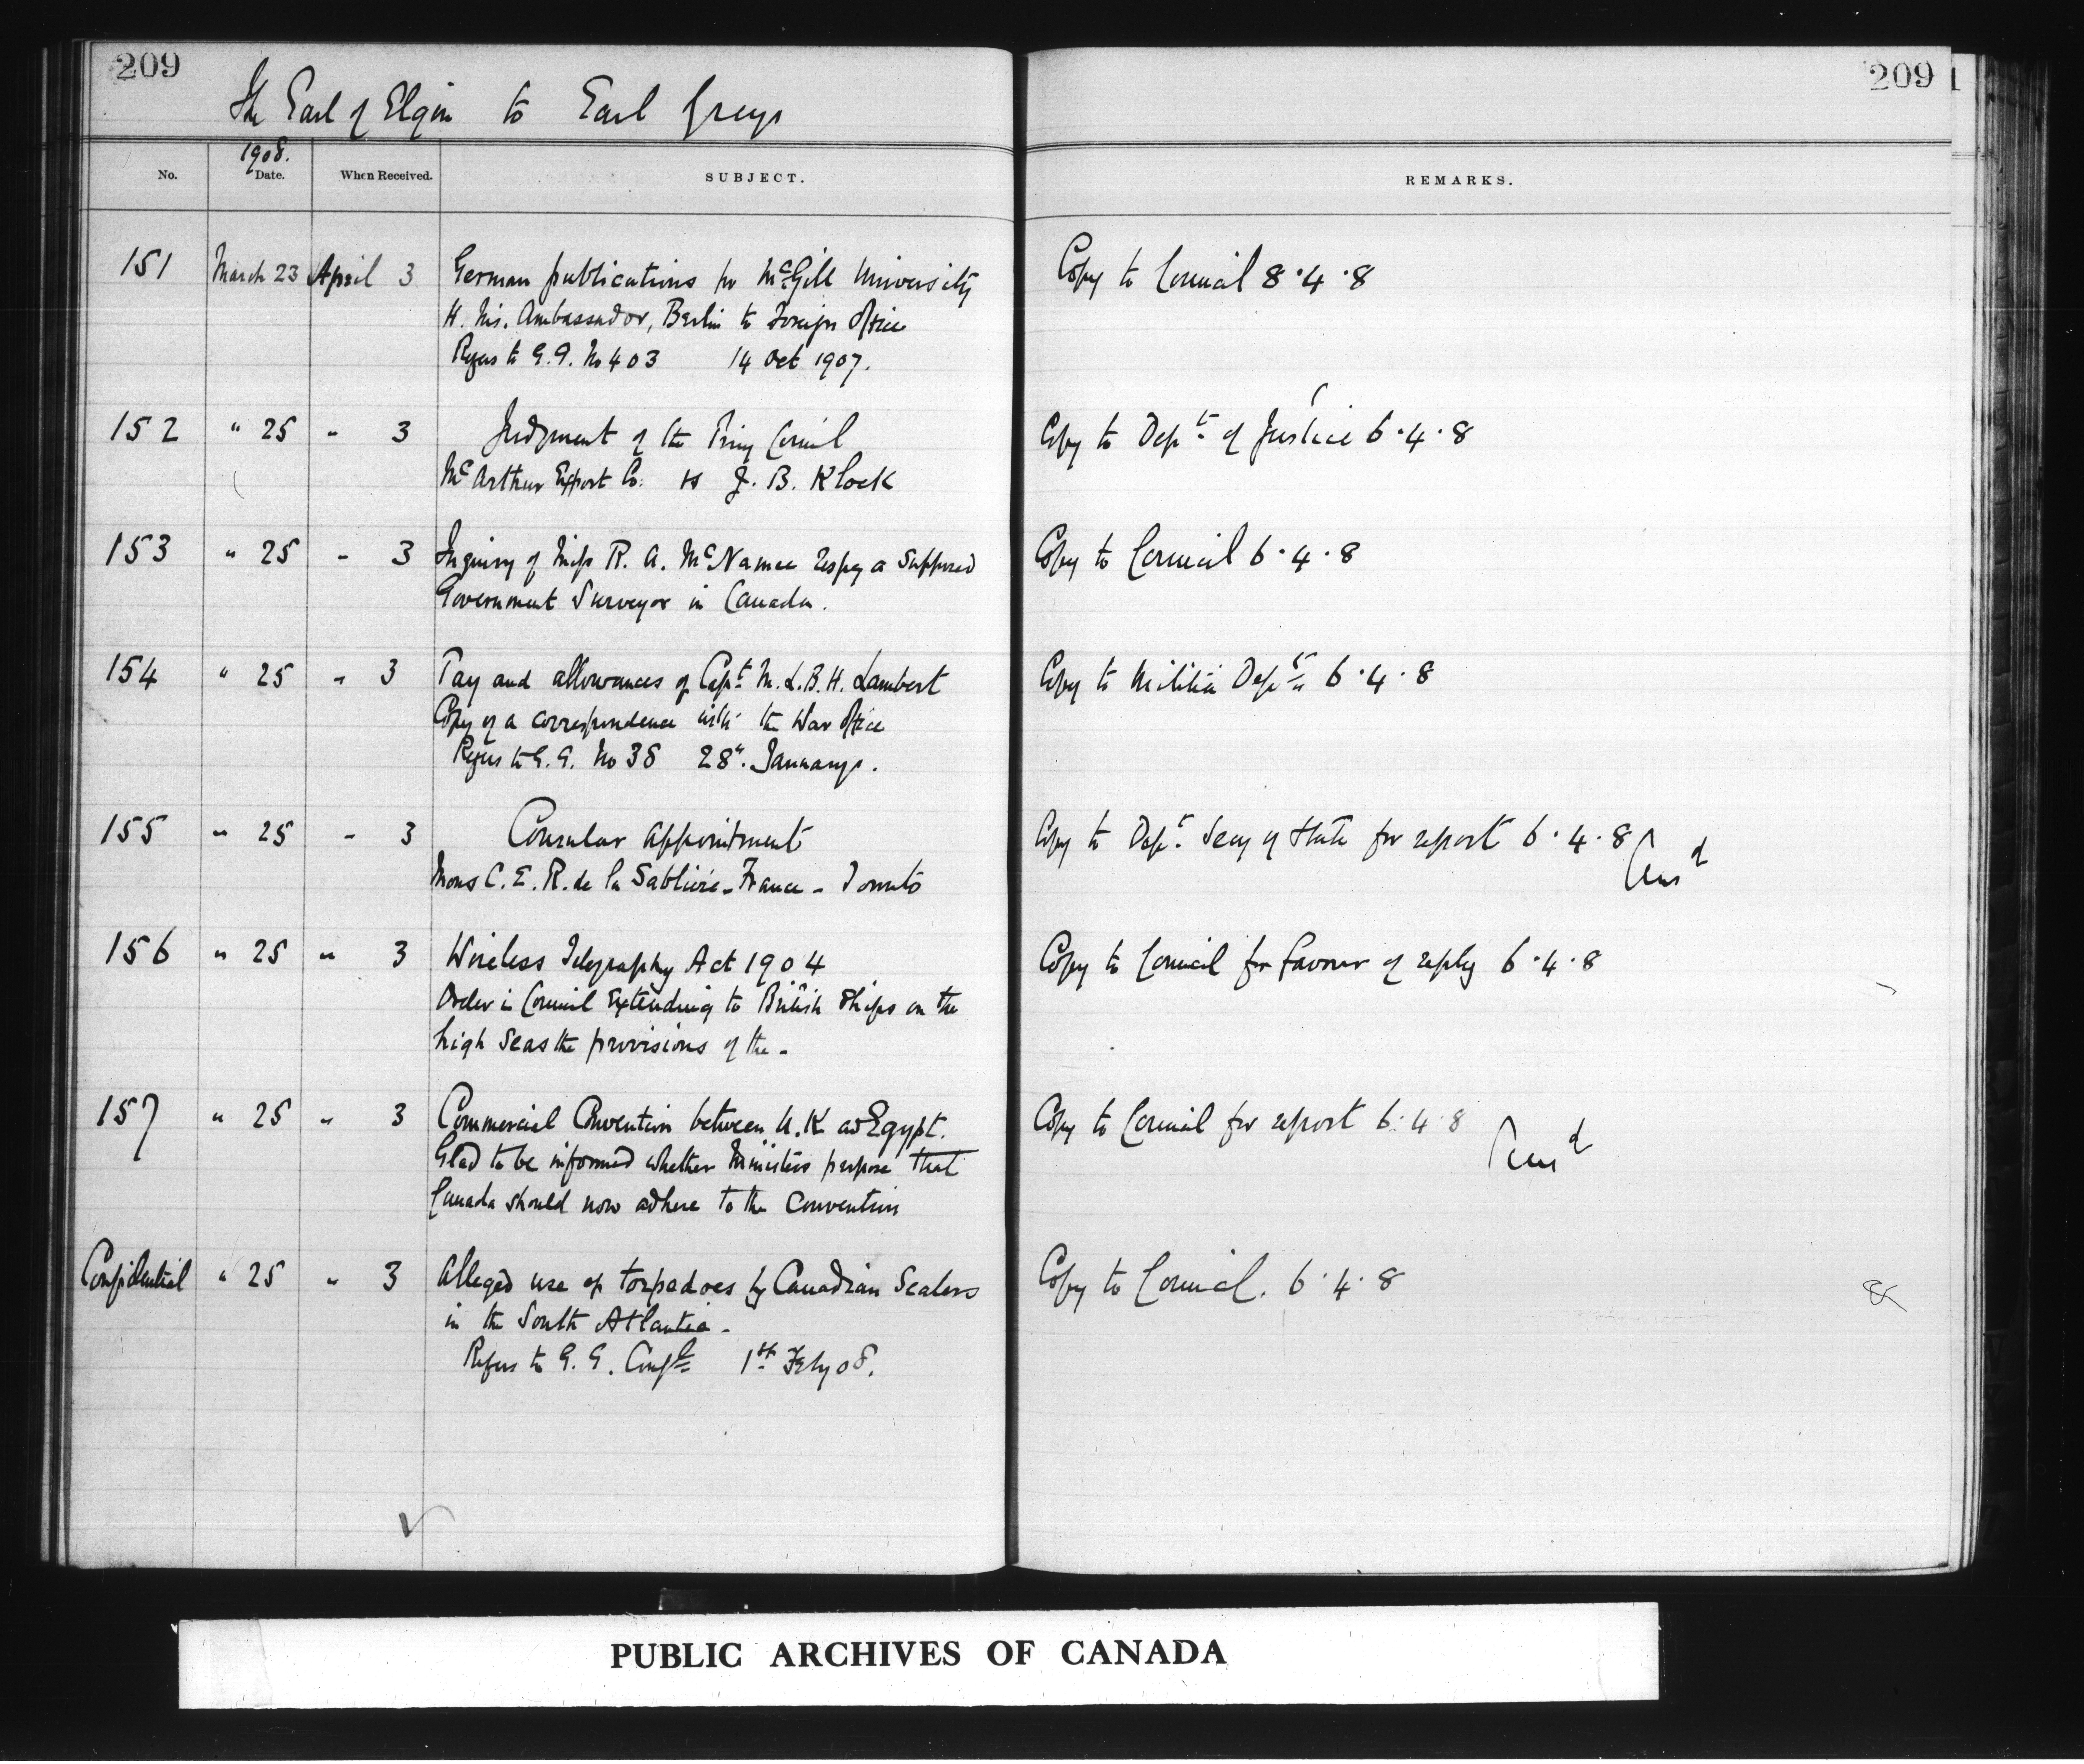 209
209
The Earl of Elgin to Earl Grey
1908.
No. Date. When Received. SUBJECT. REMARKS.
151 March 23 April 3 German publications for McGill University Copy to Council 8.4.8
H. Ms. Ambassador, Berlin to Foreign Office
Refers to G.G. No 403 14 Oct 1907.
152 " 25 " 3 Judgment of the Privy Council Copy to Dept. of Justice 6.4.8
McArthur Export Co. vs J. B. Klock
153 " 25 " 3 Inquiry of Miss R. A. McNamee respg a supposed Copy to Council 6.4.8
Government Surveyor in Canada.
154 " 25 " 3 Pay and allowances of Capt. M.L.B.H. Lambert Copy to Militia Dept. 6.4.8
Copy of a correspondence with the War Office
Refers to G.G. No 38 28". January.
155 " 25 " 3 Consular appointment Copy to Dept. Secy of State for report 6.4.8
Ansd
Mons C. E. R. de la Sabliere - France - Toronto
156 " 25 " 3 Wireless Telegraphy Act 1904 Copy to Council for favour of reply 6.4.8
Order in Council extending to British Ships on the
high seas the provisions of the -
157 " 25 " 3 Commercial Convention between U.K and Egypt. Copy to Council for report 6.4.8
Ansd
Glad to be informed whether Ministers purpose that
Canada should now adhere to the Convention
Confidential " 25 " 3 Alleged use of torpedoes by Canadian Sealers Copy to Council. 6.4.8
in the South Atlantic -
Refers to G. G. Confl 1st Feby 08.
PUBLIC ARCHIVES OF CANADA